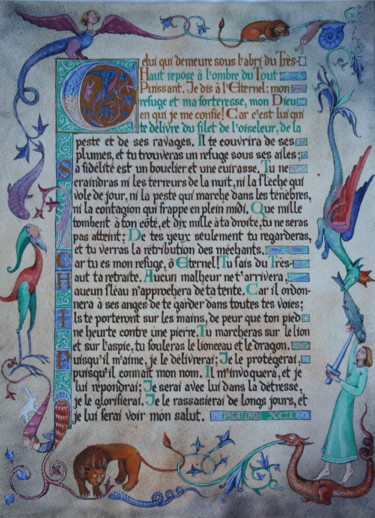 Celui qui demeure sous l'abri du Très-
Haut repose à l'ombre du Tout
Puissant. Je dis à l'Éternel: mon
refuge et ma forteresse, mon Dieu
en qui je me confie! Car c'est lui qui
te délivre du filet de l'oiseleur, de la
peste et de ses ravages. Il te couvrira de ses
plumes, et tu trouveras un refuge sous ses ailes;
sa fidélité est un bouclier et une cuirasse. Tu ne
craindras ni les terreurs de la nuit, ni la flèche qui
vole de jour, ni la peste qui marche dans les ténèbres,
ni la contagion qui frappe en plein midi. Que mille
tombent à ton côté, et dix mille à ta droite, tu ne seras
pas atteint; De tes yeux seulement tu regarderas,
et tu verras la rétribution des méchants,
Car tu es mon refuge, ô Éternel! Tu fais du Très-
Haut ta retraite. Aucun malheur ne t'arrivera,
aucun fléau n'approchera de ta tente. Car il ordon-
nera à ses anges de te garder dans toutes tes voies;
Ils te porteront sur les mains, de peur que ton pied
ne heurte contre une pierre. Tu marcheras sur le lion
et sur l'aspic, tu fouleras le lionceau et le dragon.
Puisqu'il m'aime, je le délivrerai; Je le protégerai,
puisqu'il connaît mon nom. Il m'invoquera, et je
lui répondrai; Je serai avec lui dans la détresse,
je le glorifierai. Je le rassasierai de longs jours, et
je lui ferai voir mon salut.